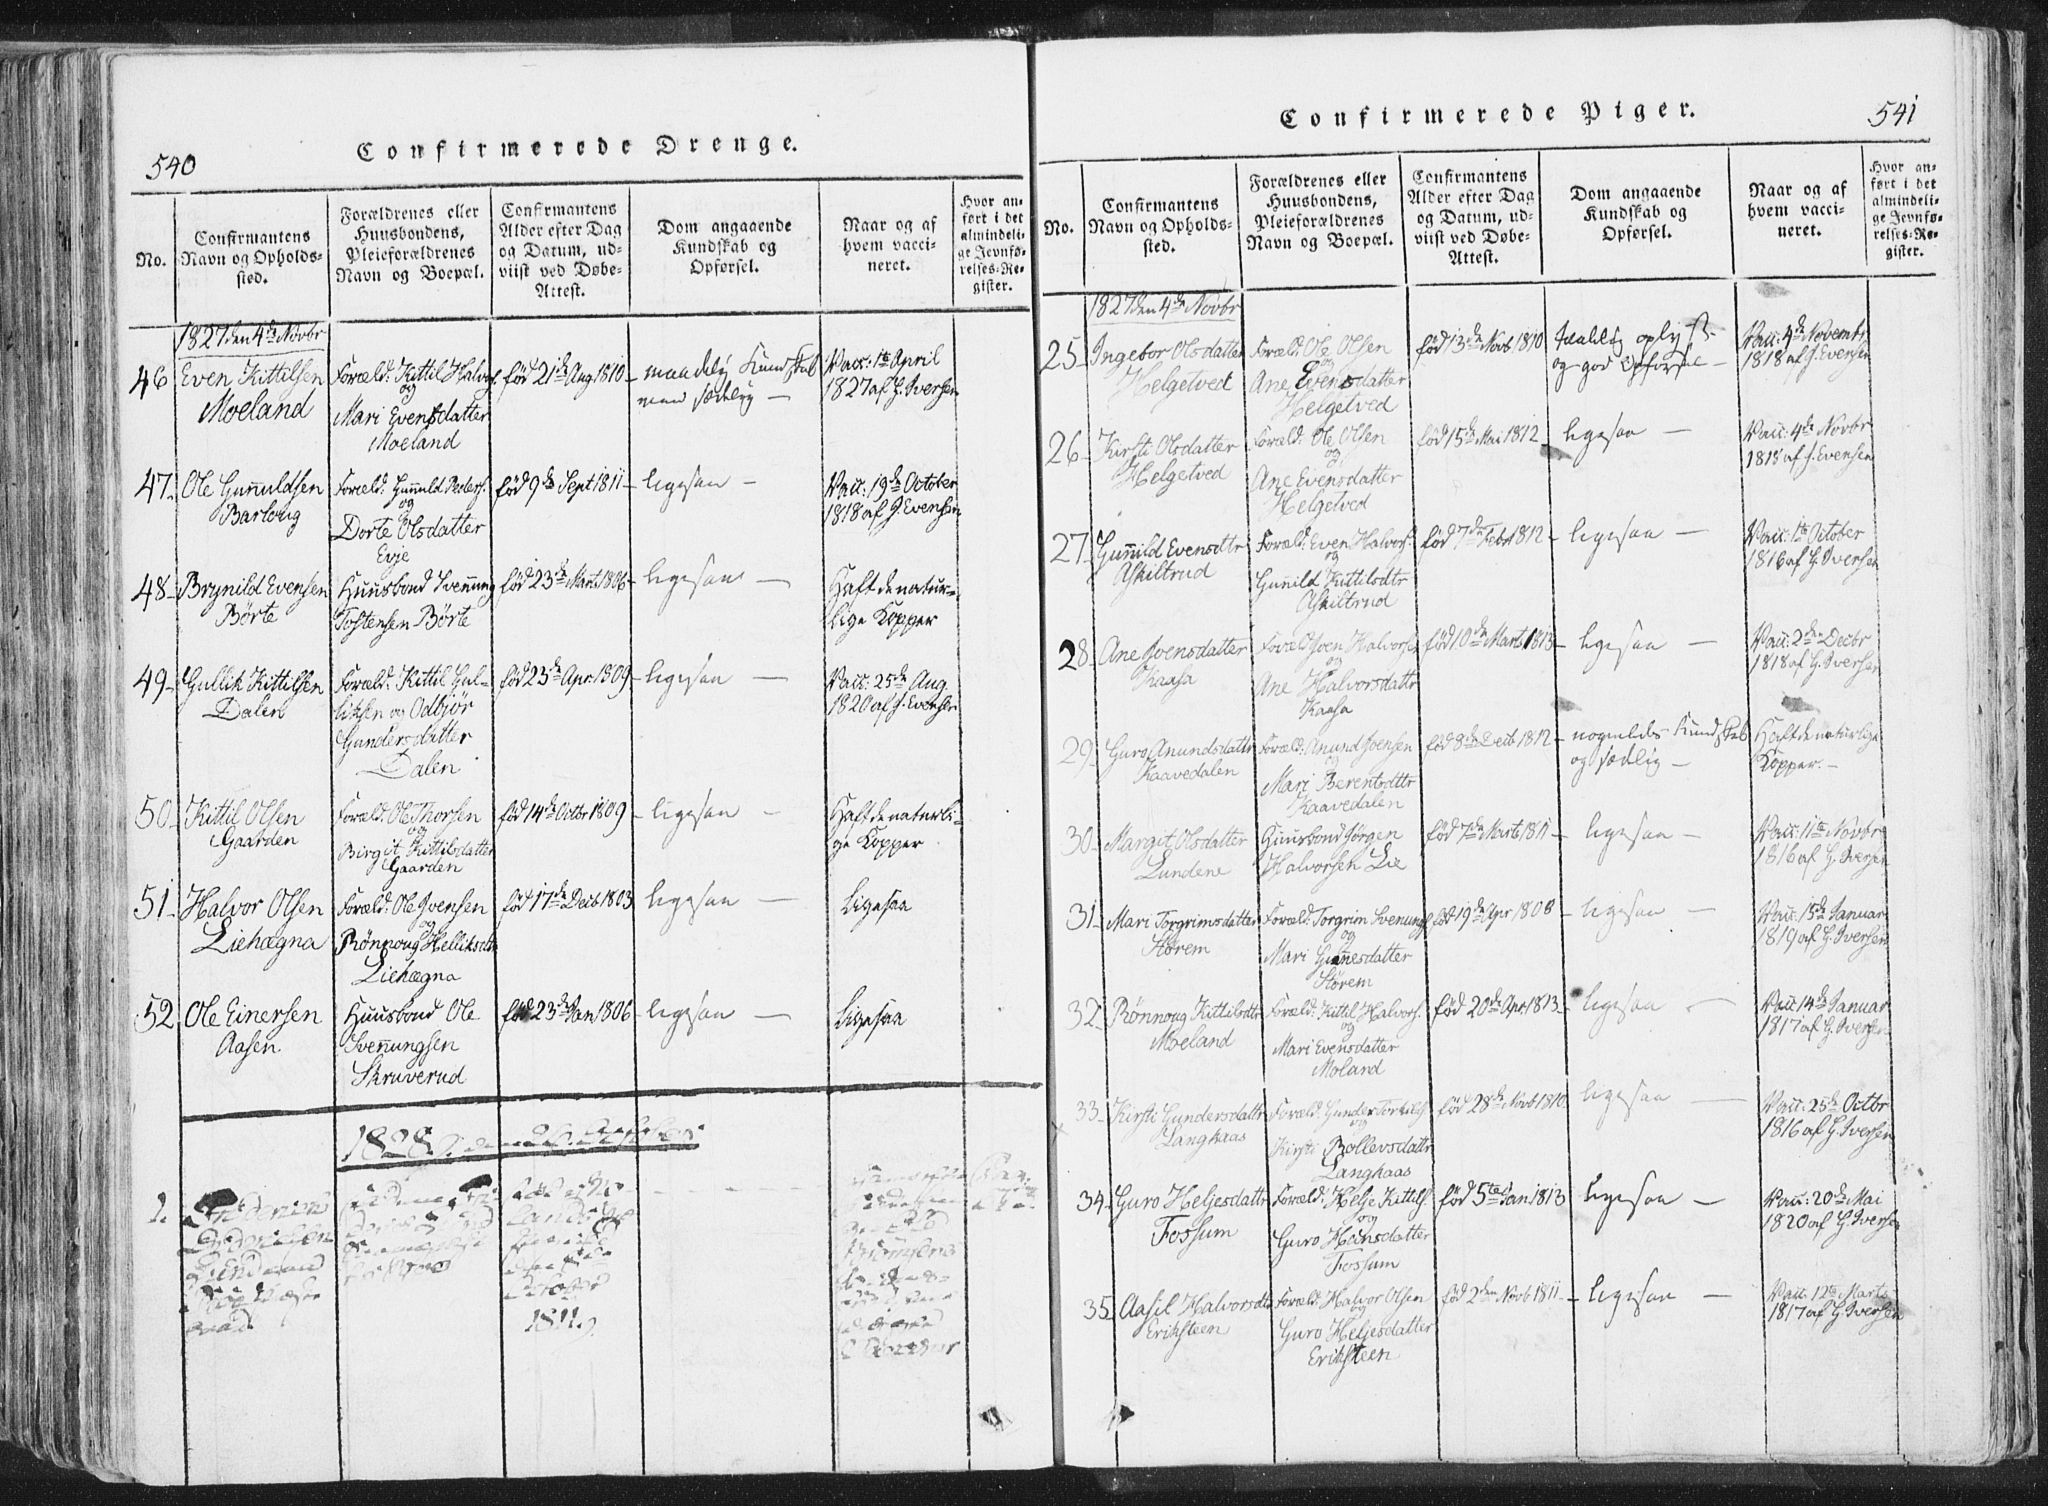 540
Confirmerede Drenge.
No.
Confirmantens
Navn og Opholds-
sted.
Forældrenes eller
Huusbondens,
Pleieforældrenes
Navn og Boepæl.
Confirmantens
Alder efter Dag
og Datum, ud-
viist ved Døbe-
Attest.
Dom angaaende
Kundskab og
Opførsel.
Naar og af
hvem vacci-
neret.
Hvor an-
ført i det
almindeli-
ge Jevnfø-
relses-Re-
gister.
1827 den 4de Novbr
46
Even Kittilsen
Moeland
Foræld: Kittil Halvors.
og
Mari Evensdatter
Moeland
fød 21de Aug 1810
maadelig Kundskab
men sædelig —
Vacc: 1te April
1827 af G. Iversen
47
Ole Gunnuldsen
Barloug
Foræld: Gunnuld Peders.
og
Dorte Olsdatter
Evje
fød 9de Sept 1811
ligesaa —
Vacc: 19de October
1818 af J. Evensen
48
Brynild Evensen
Börte
Huusbond Svennung
Tostensen Börte
fød 23de Marts 1806
ligesaa —
Haft de natur-
lige Kopper
49
Gullik Kittilsen
Dalen
Foræld: Kittil Gul-
liksen og Odbjör
Gundersdatter
Dalen
fød 23de Apr. 1809
ligesaa —
Vacc: 25de Aug.
1820 af J. Evensen
50
Kittil Olsen
Gaarden
Foræld: Ole Thorsen
og
Birgit Kittilsdatter
Gaarden
fød 14de Octbr 1809
ligesaa —
Haft de naturli-
ge Kopper
51
Halvor Olsen
Liehægna
Foræld: Ole Ivensen
og
Rönnoug Helliksdtr
Liehægna
fød 17de Decb 1803
ligesaa —
Ligesaa
52
Ole Einersen
Aasen
Huusbond Ole
Svennungsen
Skruverud
fød 23de Jan 1806
ligesaa —
Ligesaa
1828
1.
1811
541
Confirmerede Piger.
No.
Confirmantens
Navn og Opholds-
sted.
Forældrenes eller
Huusbondens,
Pleieforældrenes
Navn og Boepæl.
Confirmantens
Alder efter Dag
og Datum, ud-
viist ved Døbe-
Attest.
Dom angaaende
Kundskab og
Opførsel.
Naar og af
hvem vacci-
neret.
Hvor an-
ført i det
almindeli-
ge Jevnfø-
relses-Re-
gister.
1827 den 4de Novbr
25
Ingebor Olsdatter
Helgetved
Foræld: Ole Olsen
og
Ane Evensdatter
Helgetved
fød 13de Novb 1810
og god Opførsel —
Vacc: 4de Novembr
1818 af J. Evensen
26
Kirsti Olsdatter
Helgetved
Foræld: Ole Olsen
og
Ane Evensdatter
Helgetved
fød 15de Mai 1812
ligesaa —
Vacc: 4de Novbr
1818 af J. Evensen
27
Gunnild Evensdtr
Askiltrud
Foræld: Even Halvors.
og
Gunnild Kittilsdtr
Askiltrud
fød 7de Febr 1812
ligesaa —
Vacc: 1te October
1816 af G. Iversen
28
Ane Ivensdatter
Kaasa
Foræld Iven Halvors.
og
Ane Halvorsdattr
Kaasa
fød 10de Marts 1813
ligesaa —
Vacc: 2de Decbr
1818 af G. Iversen
29
Guro Anundsdattr
Kaavedalen
Foræld: Anund Ivensen
og
Mari Berentsdttr
Kaavedalen
fød 8de Decb 1812
nogenledes Kundskab
og sædelig —
Haft de naturlige
Kopper —
30
Margit Olsdatter
Lundene
Huusbond Jörgen
Halvorsen Lie
fød 7de Marts 1811
ligesaa —
Vacc: 11te Novbr
1816 af G. Iversen
31
Mari Torgrimsdatter
Störem
Foræld: Torgrim Svenungs.
og
Mari Gunnesdatter
Störem
fød 19de Apr 1808
ligesaa —
Vacc: 15de Januar
1819 af G. Iversen
32
Rönnoug Kittilsdtr
Moeland
Foræld: Kittil Halvors.
og
Mari Evensdatter
Moland
fød 20de Apr. 1813
ligesaa —
Vacc 14de Januar
1817 af G. Iversen
33
Kirsti Gundersdattr
Langhaas
Foræld: Gunder Torkils.
og
Kirsti Rollevsdattr
Langhaas
fød 28de Novb 1810
ligesaa —
Vacc: 25de Octbr
1816 af G. Iversen
34
Guro Heljesdattr
Fossum
Foræld: Helje Kittils.
og
Guro Hansdatter
Fossum
fød 5te Jan 1813
ligesaa —
Vacc: 20de Mai
1820 af G. Iversen
35
Aasil Halvorsdtr
Eriksteen
Foræld: Halvor Olsen
og
Guro Heljesdatter
Eriksteen
fød 2den Novb 1811
ligesaa —
Vacc: 12te Marts
1817 af G. Iversen